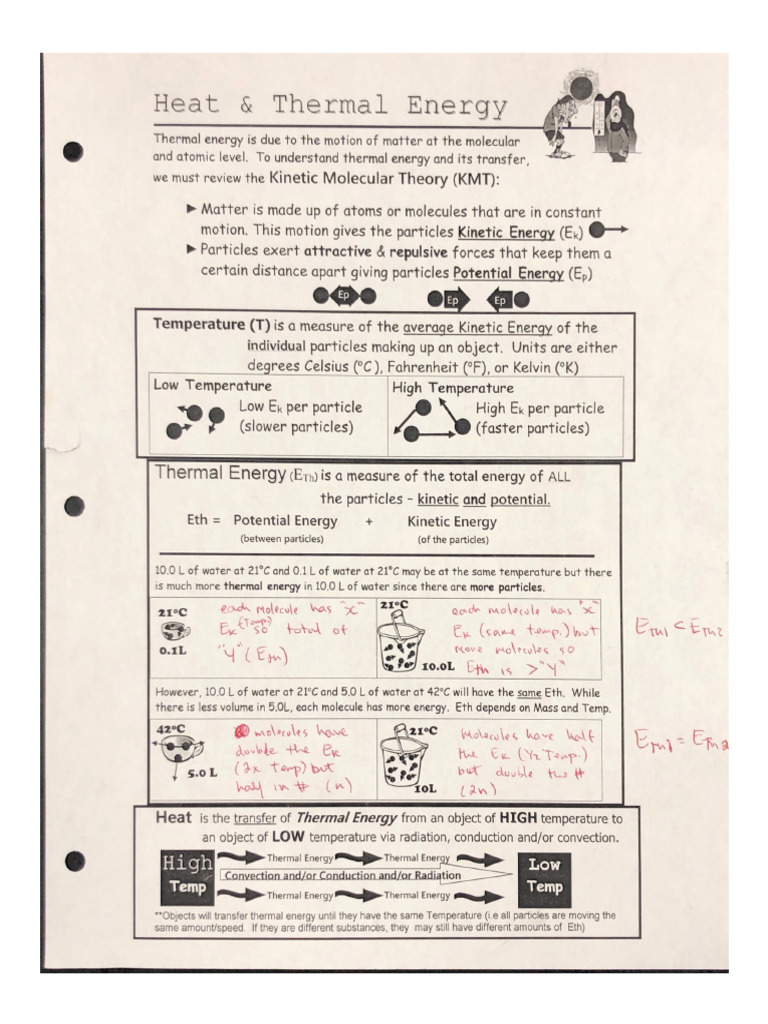 Heat & Thermal Energy
Thermal energy is due to the motion of matter at the molecular
and atomic level. To understand thermal energy and its transfer,
we must review the Kinetic Molecular Theory (KMT):
► Matter is made up of atoms or molecules that are in constant
motion. This motion gives the particles Kinetic Energy (Ek)
► Particles exert attractive & repulsive forces that keep them a
certain distance apart giving particles Potential Energy (Ep)
Ep Ep Ep
Temperature (T) is a measure of the average Kinetic Energy of the
individual particles making up an object. Units are either
degrees Celsius (°C), Fahrenheit (°F), or Kelvin (°K)
Low Temperature
Low Ek per particle
(slower particles)
High Temperature
High Ek per particle
(faster particles)
Thermal Energy (ETh) is a measure of the total energy of ALL
the particles – kinetic and potential.
Eth = Potential Energy + Kinetic Energy
(between particles) (of the particles)
10.0 L of water at 21°C and 0.1 L of water at 21°C may be at the same temperature but there
is much more thermal energy in 10.0 L of water since there are more particles.
21°C
0.1L
each molecule has "x"
Ek (Temp) so total of
"Y" (Eth)
21°C
10.0L
each molecule has "x"
Ek (same temp.) but
more molecules so
Eth is > "Y"
ETH1 < ETH2
However, 10.0 L of water at 21°C and 5.0 L of water at 42°C will have the same Eth. While
there is less volume in 5.0L, each molecule has more energy. Eth depends on Mass and Temp.
42°C
5.0 L
molecules have
double the Ek
(2x temp) but
half in # (n)
21°C
10L
Molecules have half
the Ek (1/2 Temp.)
but double the #
(2n)
ETH1 = ETH2
Heat is the transfer of Thermal Energy from an object of HIGH temperature to
an object of LOW temperature via radiation, conduction and/or convection.
High
Temp
Thermal Energy Thermal Energy
Convection and/or Conduction and/or Radiation
Thermal Energy Thermal Energy
Low
Temp
**Objects will transfer thermal energy until they have the same Temperature (i.e all particles are moving the
same amount/speed. If they are different substances, they may still have different amounts of Eth)